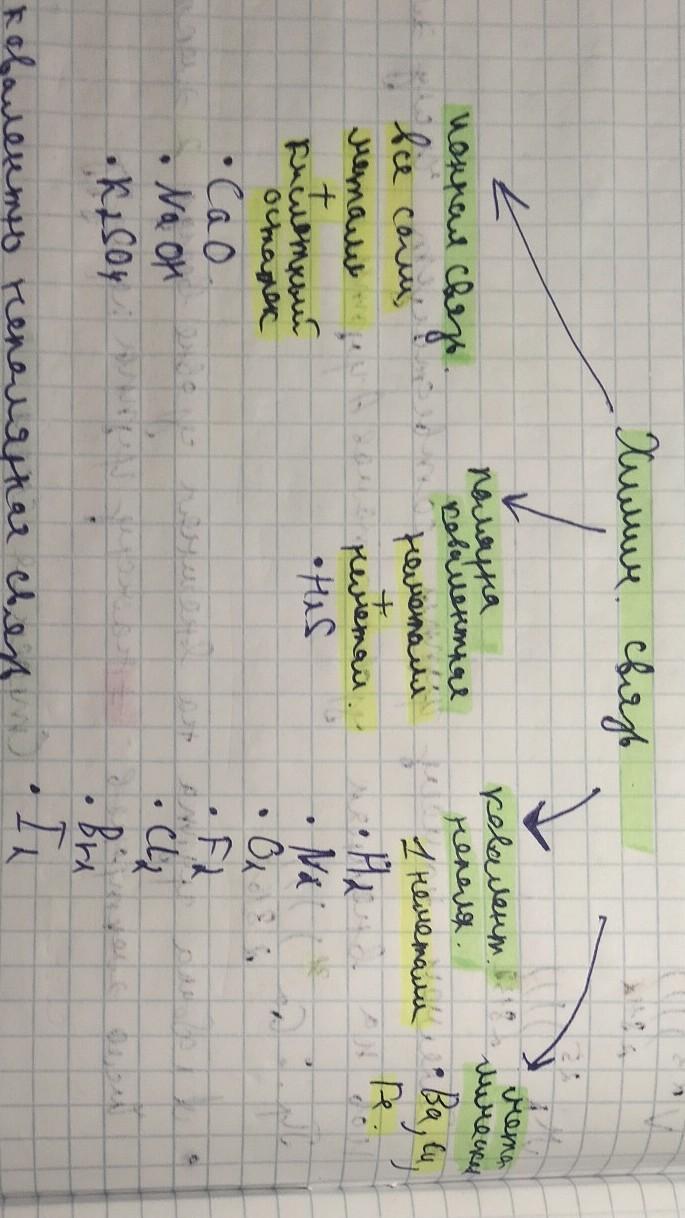 Химич. связь
ионная связь.
все соли,
металл
+
кислотный
остаток
• CaO.
• NaOH
• K2SO4
полярна
ковалентная
неметалл
+
неметалл.
• H2S
ковалент.
неполя.
1 неметалл
• H2
• N2
• O2
• F2
• Cl2
• Br2
• I2
мета
лическая
• Ba, Cu,
Fe.
ковалентно неполярная связь